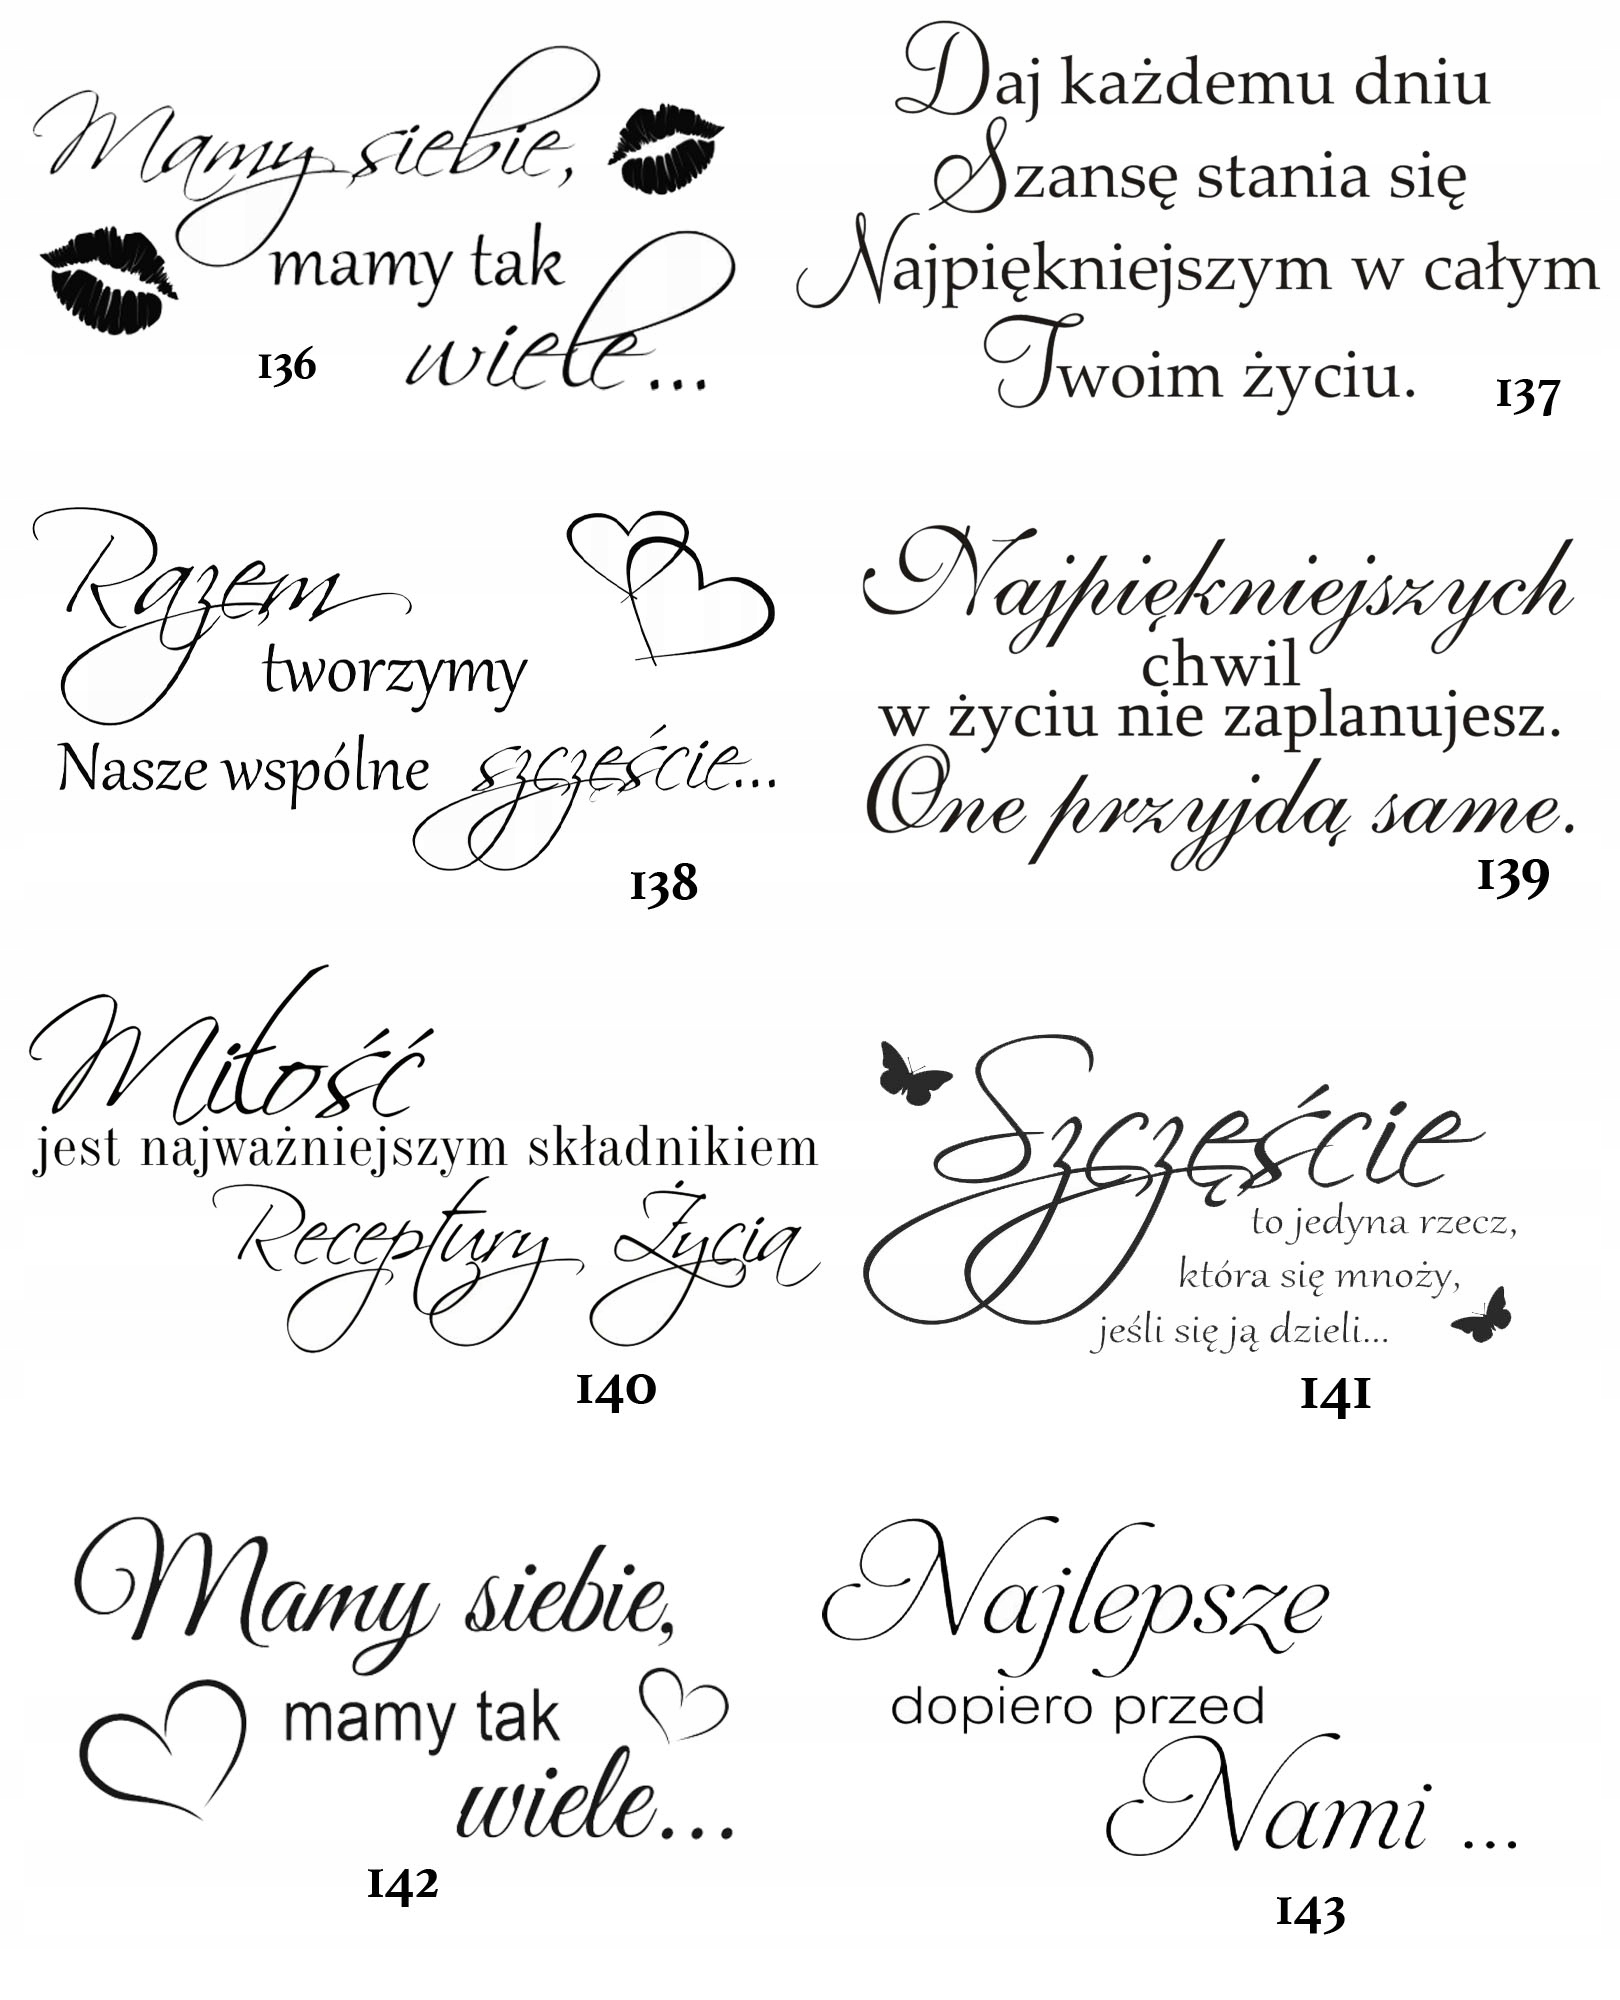 Mamy siebie,
mamy tak
wiele...
136
Daj każdemu dniu
Szansę stania się
Najpiękniejszym w całym
Twoim życiu.
137
Razem
tworzymy
Nasze wspólne szczęście...
138
Najpiękniejszych
chwil
w życiu nie zaplanujesz.
One przyjdą same.
139
Miłość
jest najważniejszym składnikiem
Receptury Życia
140
Szczęście
to jedyna rzecz,
która się mnoży,
jeśli się ją dzieli...
141
Mamy siebie,
mamy tak
wiele...
142
Najlepsze
dopiero przed
Nami ...
143